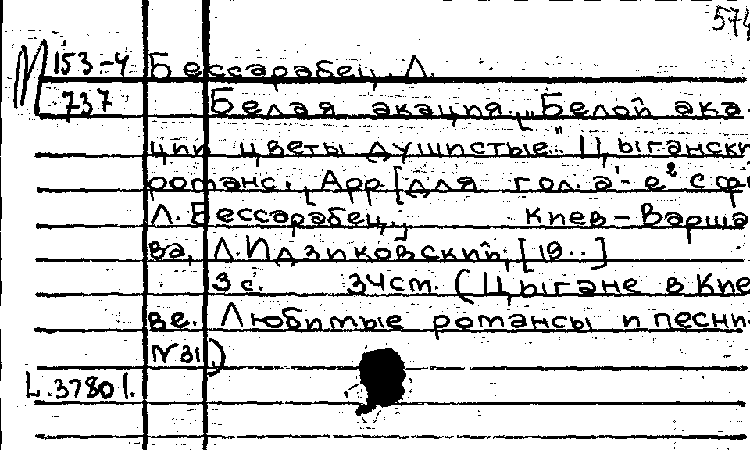 574
М 153-4 Бессарабец, Л.
737 Белая акация. „Белой ака
ции цветы душистые." Цыганск
романс. Арр [для гол. a'-e² с фп
Л. Бессарабец. Киев-Варша
ва, Л. Идзиковский, [19..]
3 с. 34 см. (Цыгане в Кие
ве. Любимые романсы и песни
№ 31)
L.3780 l.